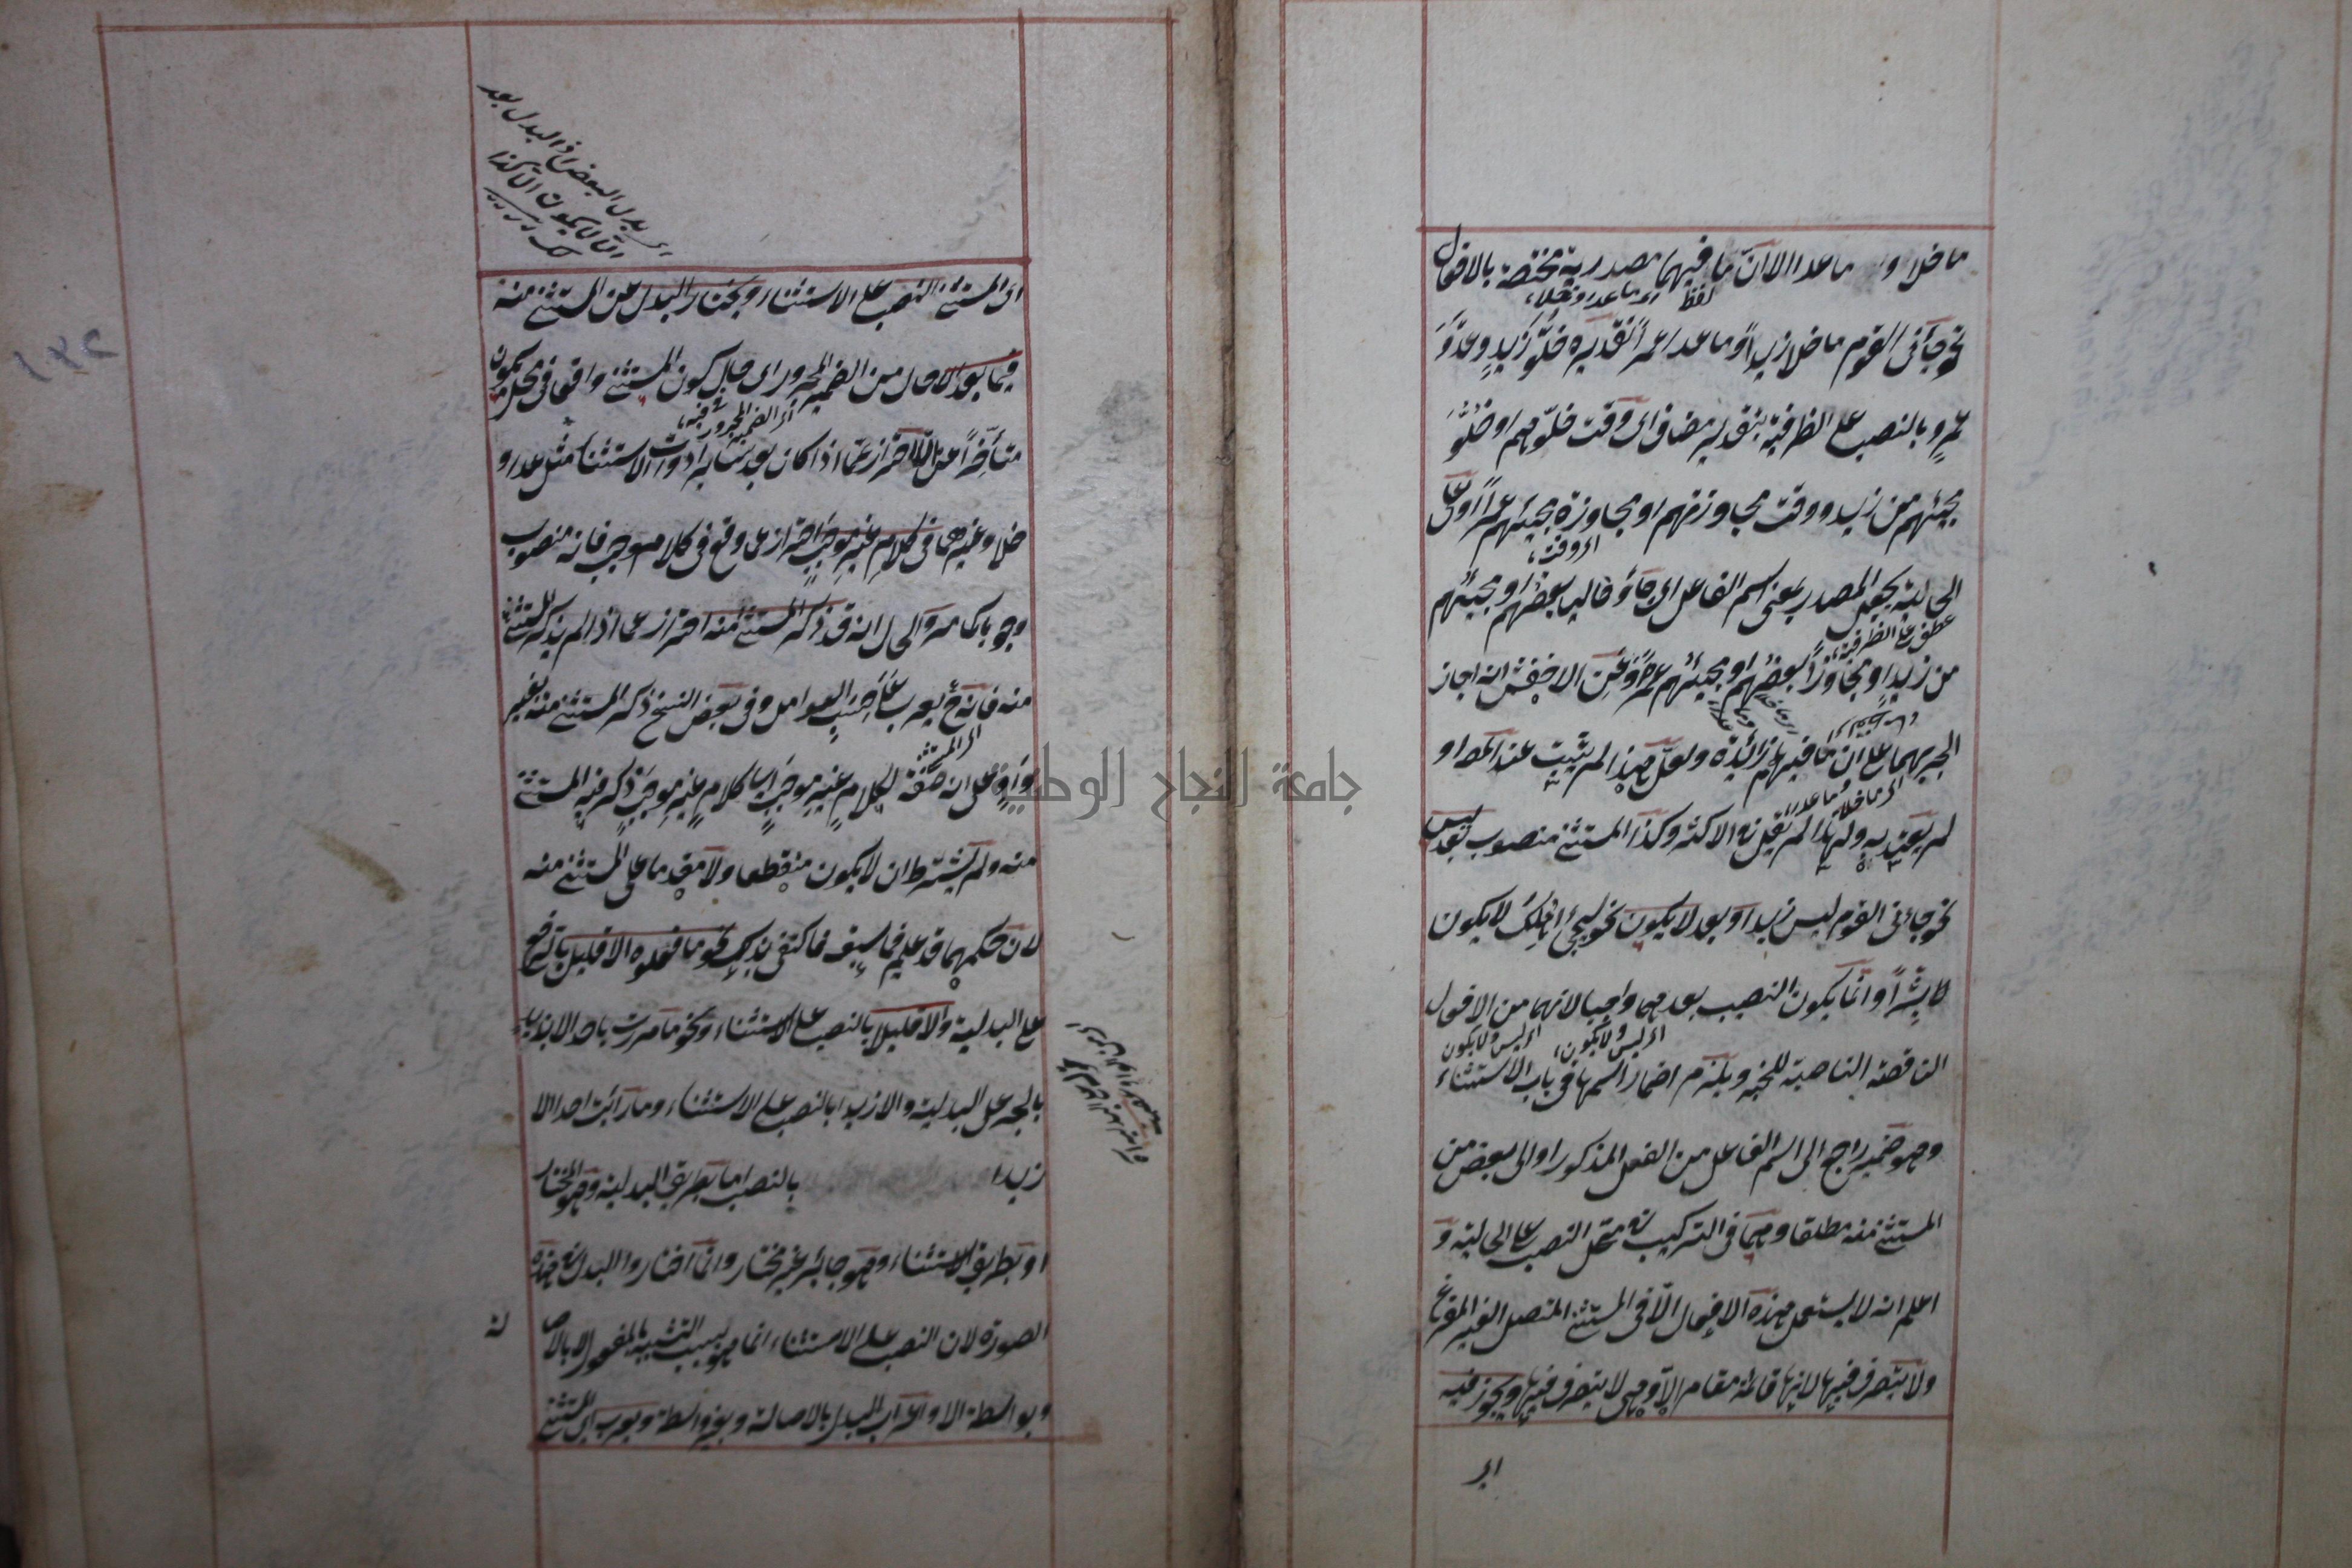 ما خلا و ما عدا لان ما فيهما مصدرية مختصة بالافعال
لفظ اى ما عدا وخلا
نحو جاءنى القوم ما خلا زيدا وما عدا عمرا تقديره خلوّ زيد وعدوّ
عمرو بالنصب على الظرفية بتقدير مضاف اى وقت خلوّهم او خلوّ
مجيئهم من زيد ووقت مجاوزتهم او مجاوزة مجيئهم عمرا او على
اى وقت
الحالية بجعل المصدر بمعنى اسم الفاعل اى جاؤا خاليا بعضهم او مجيئهم
عطف على الظرفية
من زيد او مجاوزا بعضهم او مجيئهم عمرا وعن الاخفش انه اجاز
الجر بهما على ان ما فيهما زائدة ولعل هذا لم يثبت عند المص او
اى ما خلا وما عدا
لم يعتد به ولهذا لم يقل فى الاكثر وكذا المستثنى منصوب بعد ليس
نحو جاءنى القوم ليس زيدا وبعد لا يكون نحو سيجئ اهلك لا يكون
بشرا وانما يكون النصب بعدهما واجبا لانهما من الافعال
اى ليس ولا يكون اى ليس ولا يكون
الناقصة الناصبة للخبر ويلزم اضمار اسمها فى باب الاستثناء
وهو ضمير راجع الى اسم الفاعل من الفعل المذكور او الى بعض من
المستثنى منه مطلقا وهما فى التركيب فى محل النصب على الحالية و
اعلم انه لا يستعمل هذه الافعال الا فى المستثنى المتصل الغير المفرغ
ولا يتصرف فيها لانها قائمة مقام الا وهى لا يتصرف فيها ويجوز فيه
اى
اى بدل البعض اذ البدل بعد
الا لا يكون الا كذا
اى المستثنى النصب على الاستثناء ويختار البدل عن المستثنى منه
فيما بعد الا حال من الضمير المجرور اى حال كون المستثنى واقعا فى محل يكون
اى الضمير المجرور فيه
متأخرا عن الا احتراز عما اذا كان بعد سائر ادوات الاستثناء مثل عدا و
خلا وغيرهما فى كلام غير موجب احتراز عما وقع فى كلام موجب فانه منصوب
وجوبا كما مر والحال انه قد ذكر المستثنى منه احتراز عما اذا لم يذكر المستثنى
منه فانه ح يعرب على حسب العوامل وفى بعض النسخ ذكر المستثنى منه بغير
اى المستثنى
واو على انه صفة لكلام غير موجب اى كلام غير موجب ذكر فيه المستثنى
منه ولم يشترط ان لا يكون منقطعا ولا مقدما على المستثنى منه
لان حكمهما قد علم فيما سبق فاكتفى بذلك نحو ما فعلوه الا قليل بالرفع
على البدلية والا قليلا بالنصب على الاستثناء ونحو ما مررت باحد الا بزيد
بالجر على البدلية والا زيدا بالنصب على الاستثناء وما رأيت احدا الا
زيدا بالنصب اما بطريق البدلية وهو المختار
او بطريق الاستثناء وهو جائز غير مختار وانما اختاروا البدل فى هذه
الصورة لان النصب على الاستثناء انما هو بسبب التشبيه بالمفعول لا بالاصا
لة
وبواسطة الا واعراب البدل بالاصالة وبغير واسطة ويعرب اى المستثنى
١٣٢
جامعة النجاح الوطنية